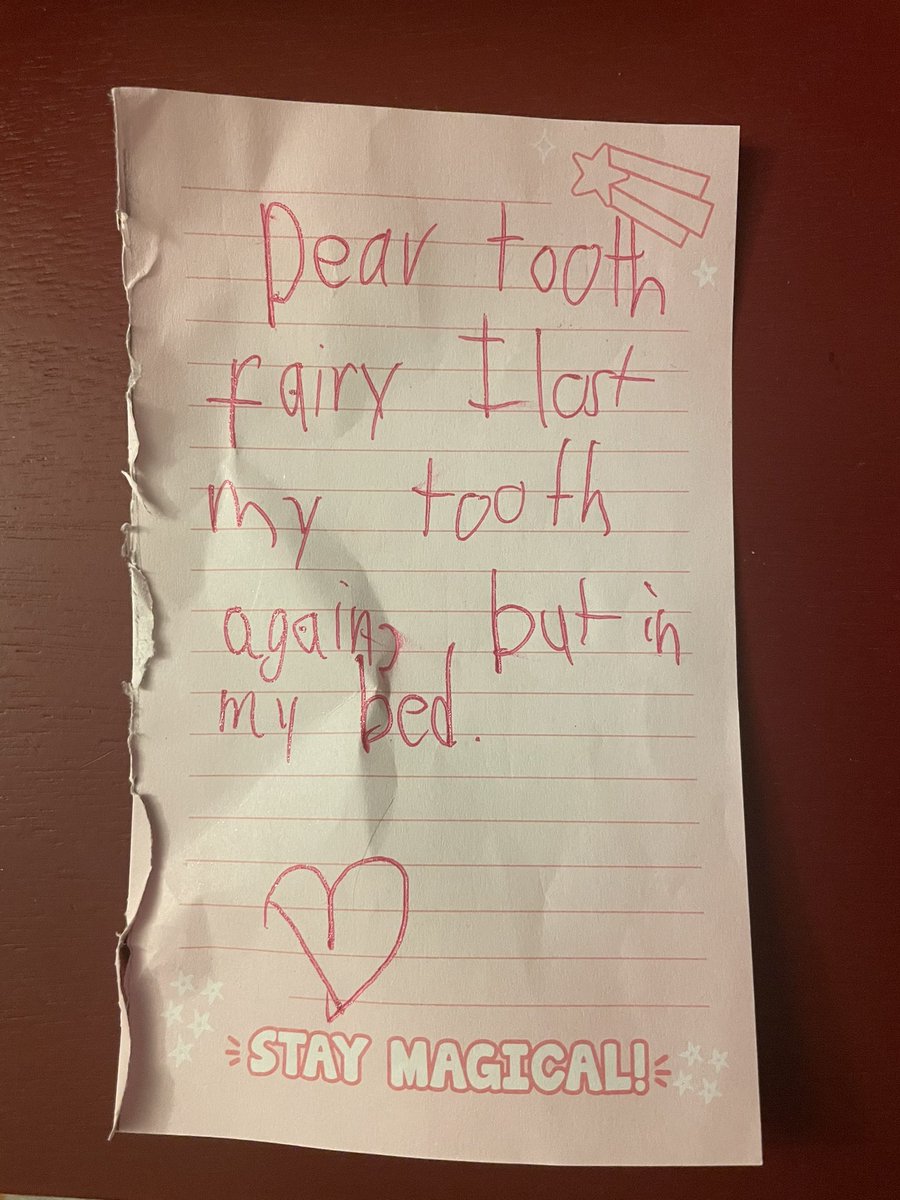 Dear tooth
fairy I lost
my tooth
again, but in
my bed.
STAY MAGICAL!